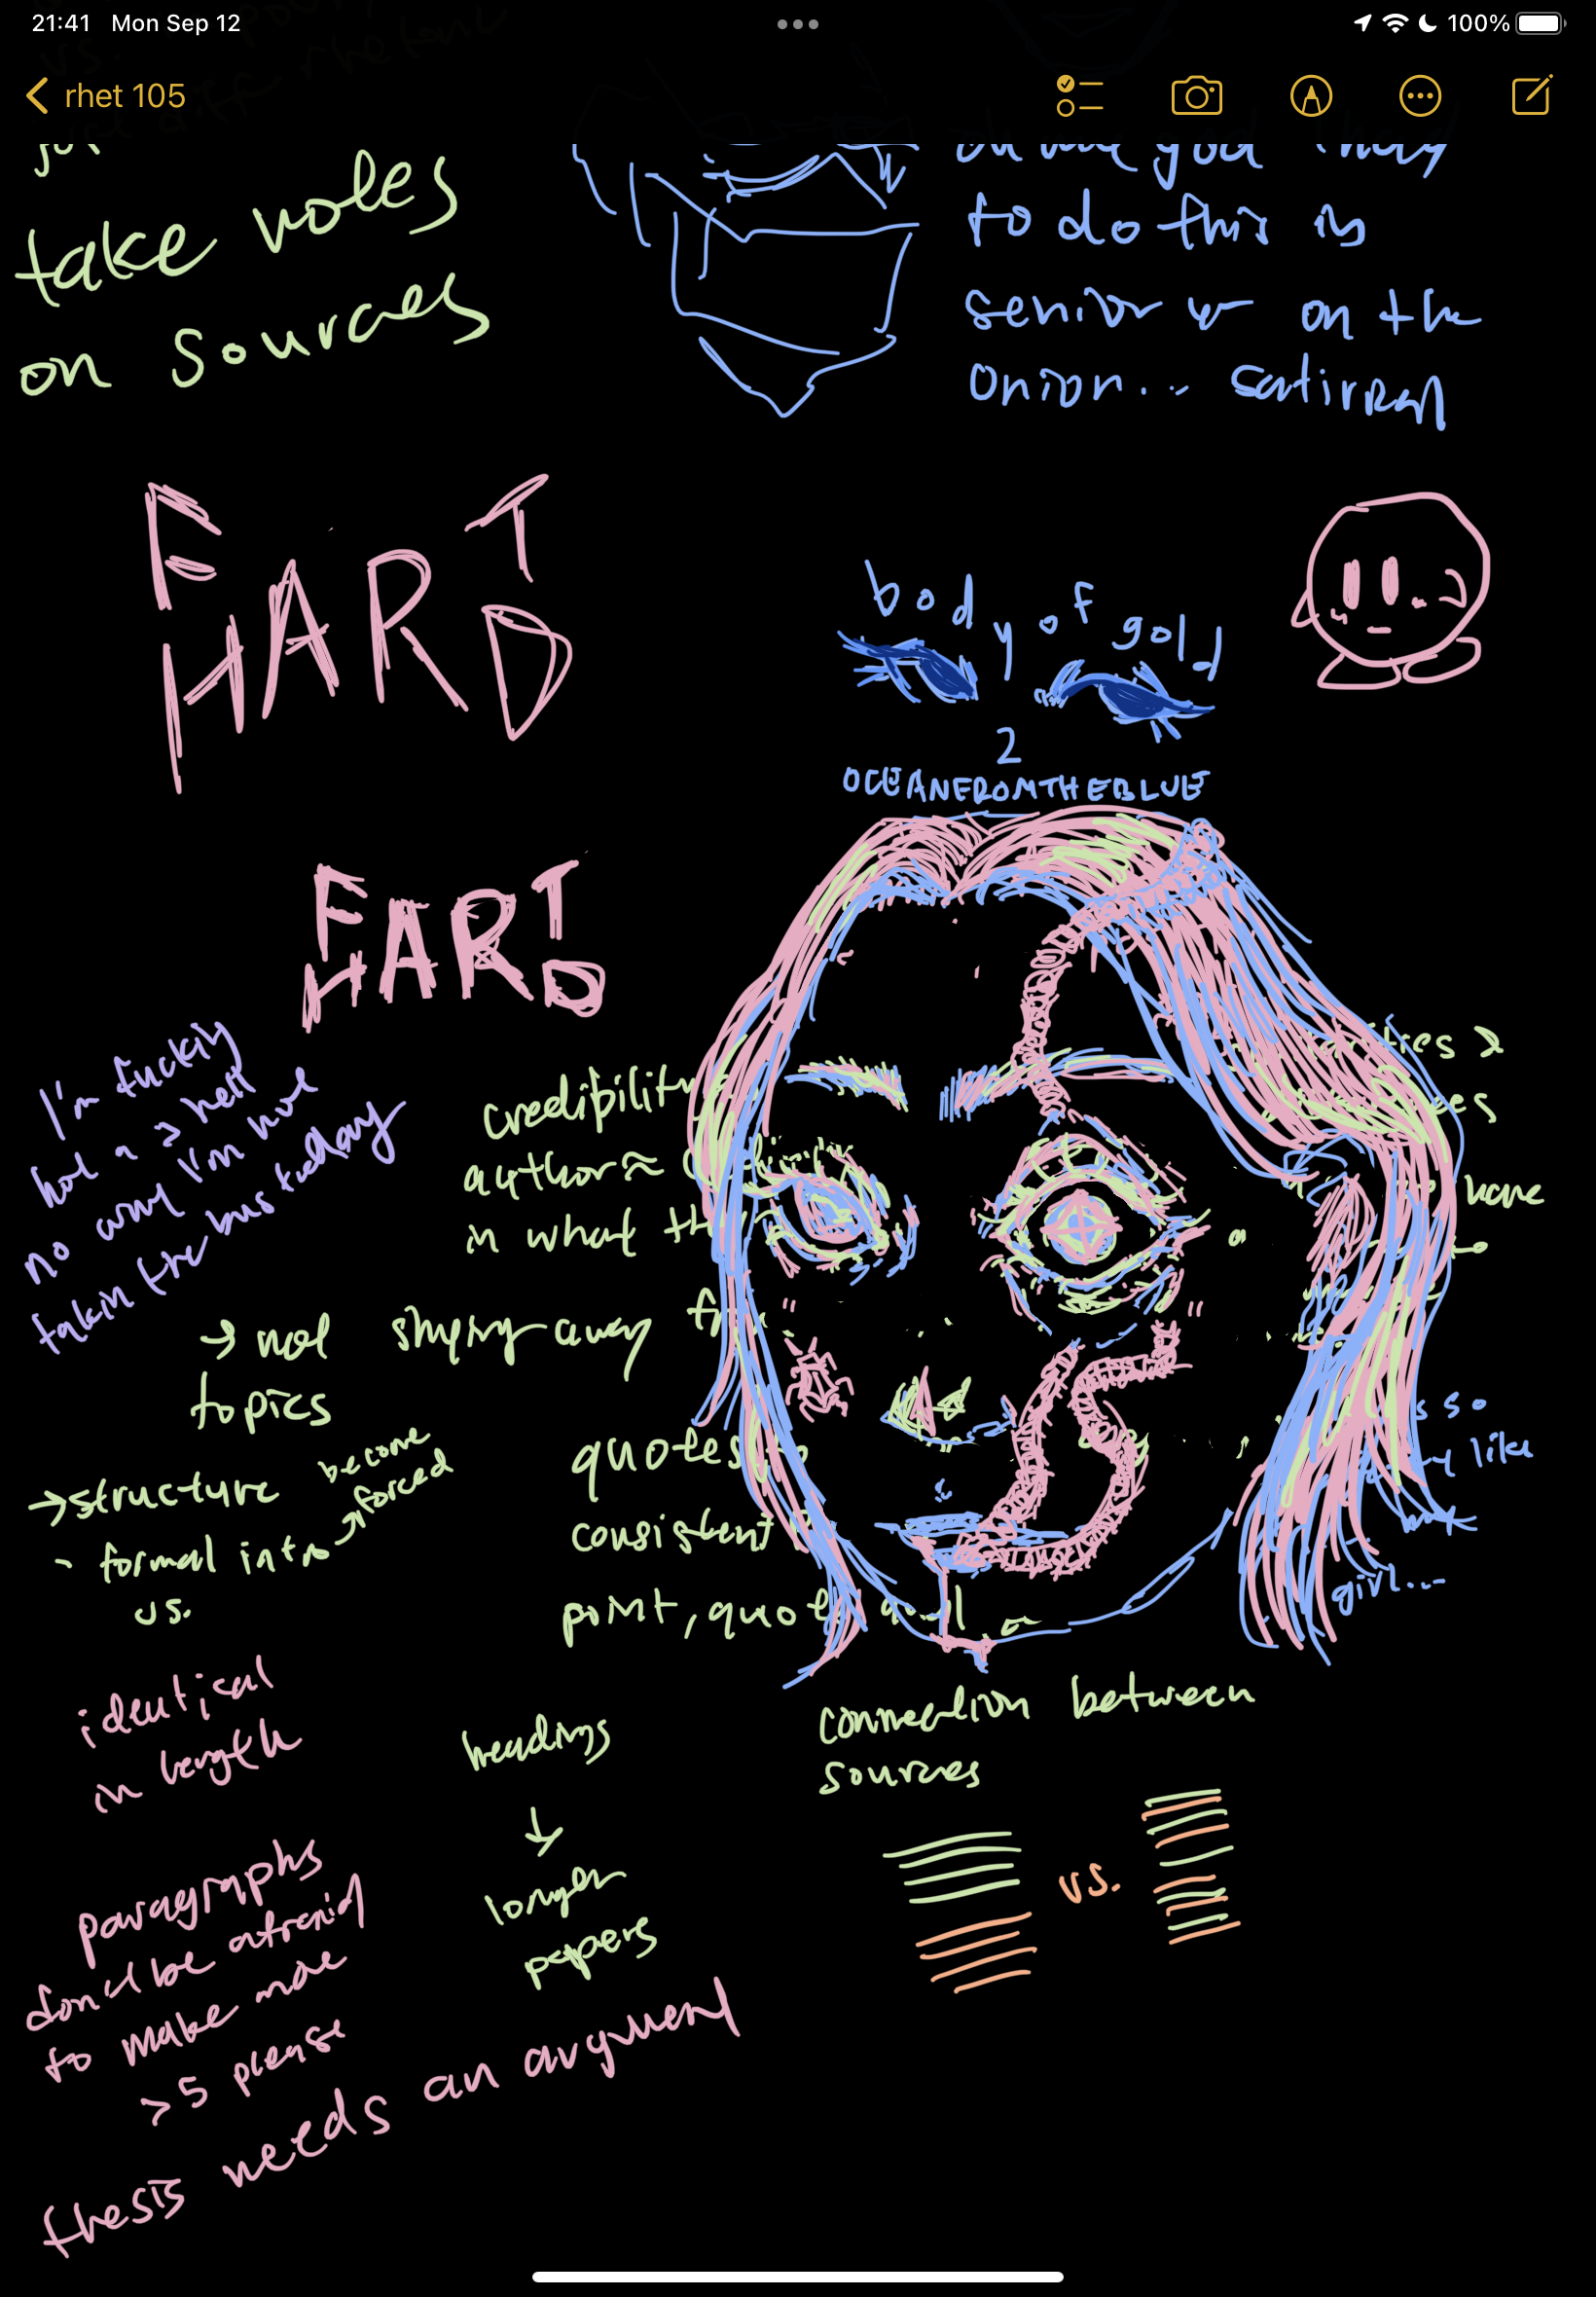 21:41 Mon Sep 12
100%
rhet 105
take notes
on sources
oh my god
to do this in
senior yr on the
Onion... satirical
FART
HARD
body of gold
2
OCEANFROMTHEBLUE
FART
HARD
I'm fuckin
hot as hell
no way I'm not
takin the bus today
credibility
author ≈
in what
→ not shying away
topics
→ structure
- formal intro → become forced
vs.
identical
in length
quotes
consistent
point, quote,
have
so
like
girl...
headings
↓
longer
papers
connection between
sources
vs.
paragraphs
don't be afraid
to make more
>5 please
thesis needs an argument